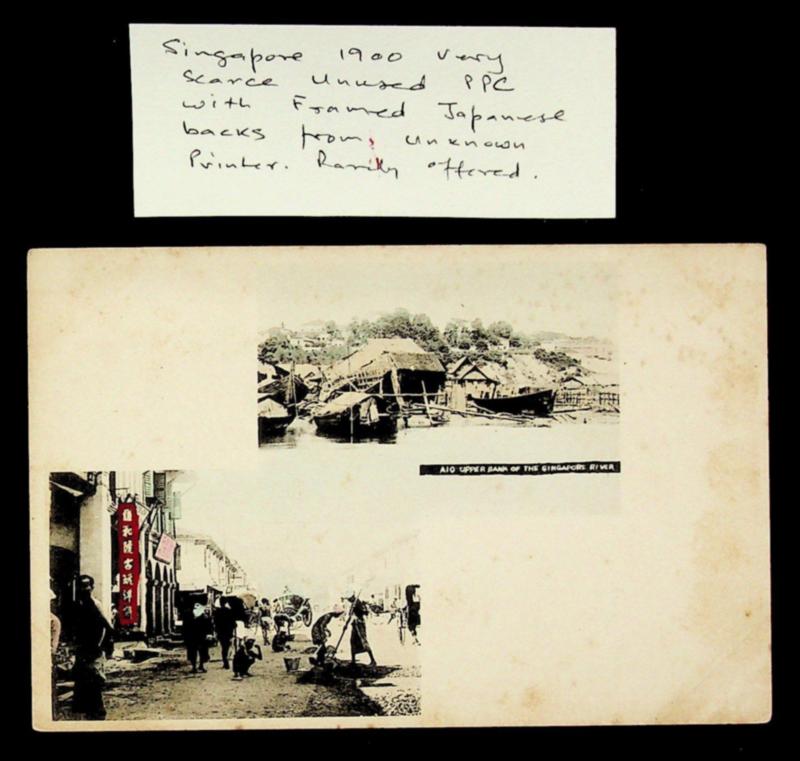 Singapore 1900 Very
Scarce Unused PPC
with Framed Japanese
backs from unknown
Printer. Rarily offered.
A10 UPPER BANK OF THE SINGAPORE RIVER